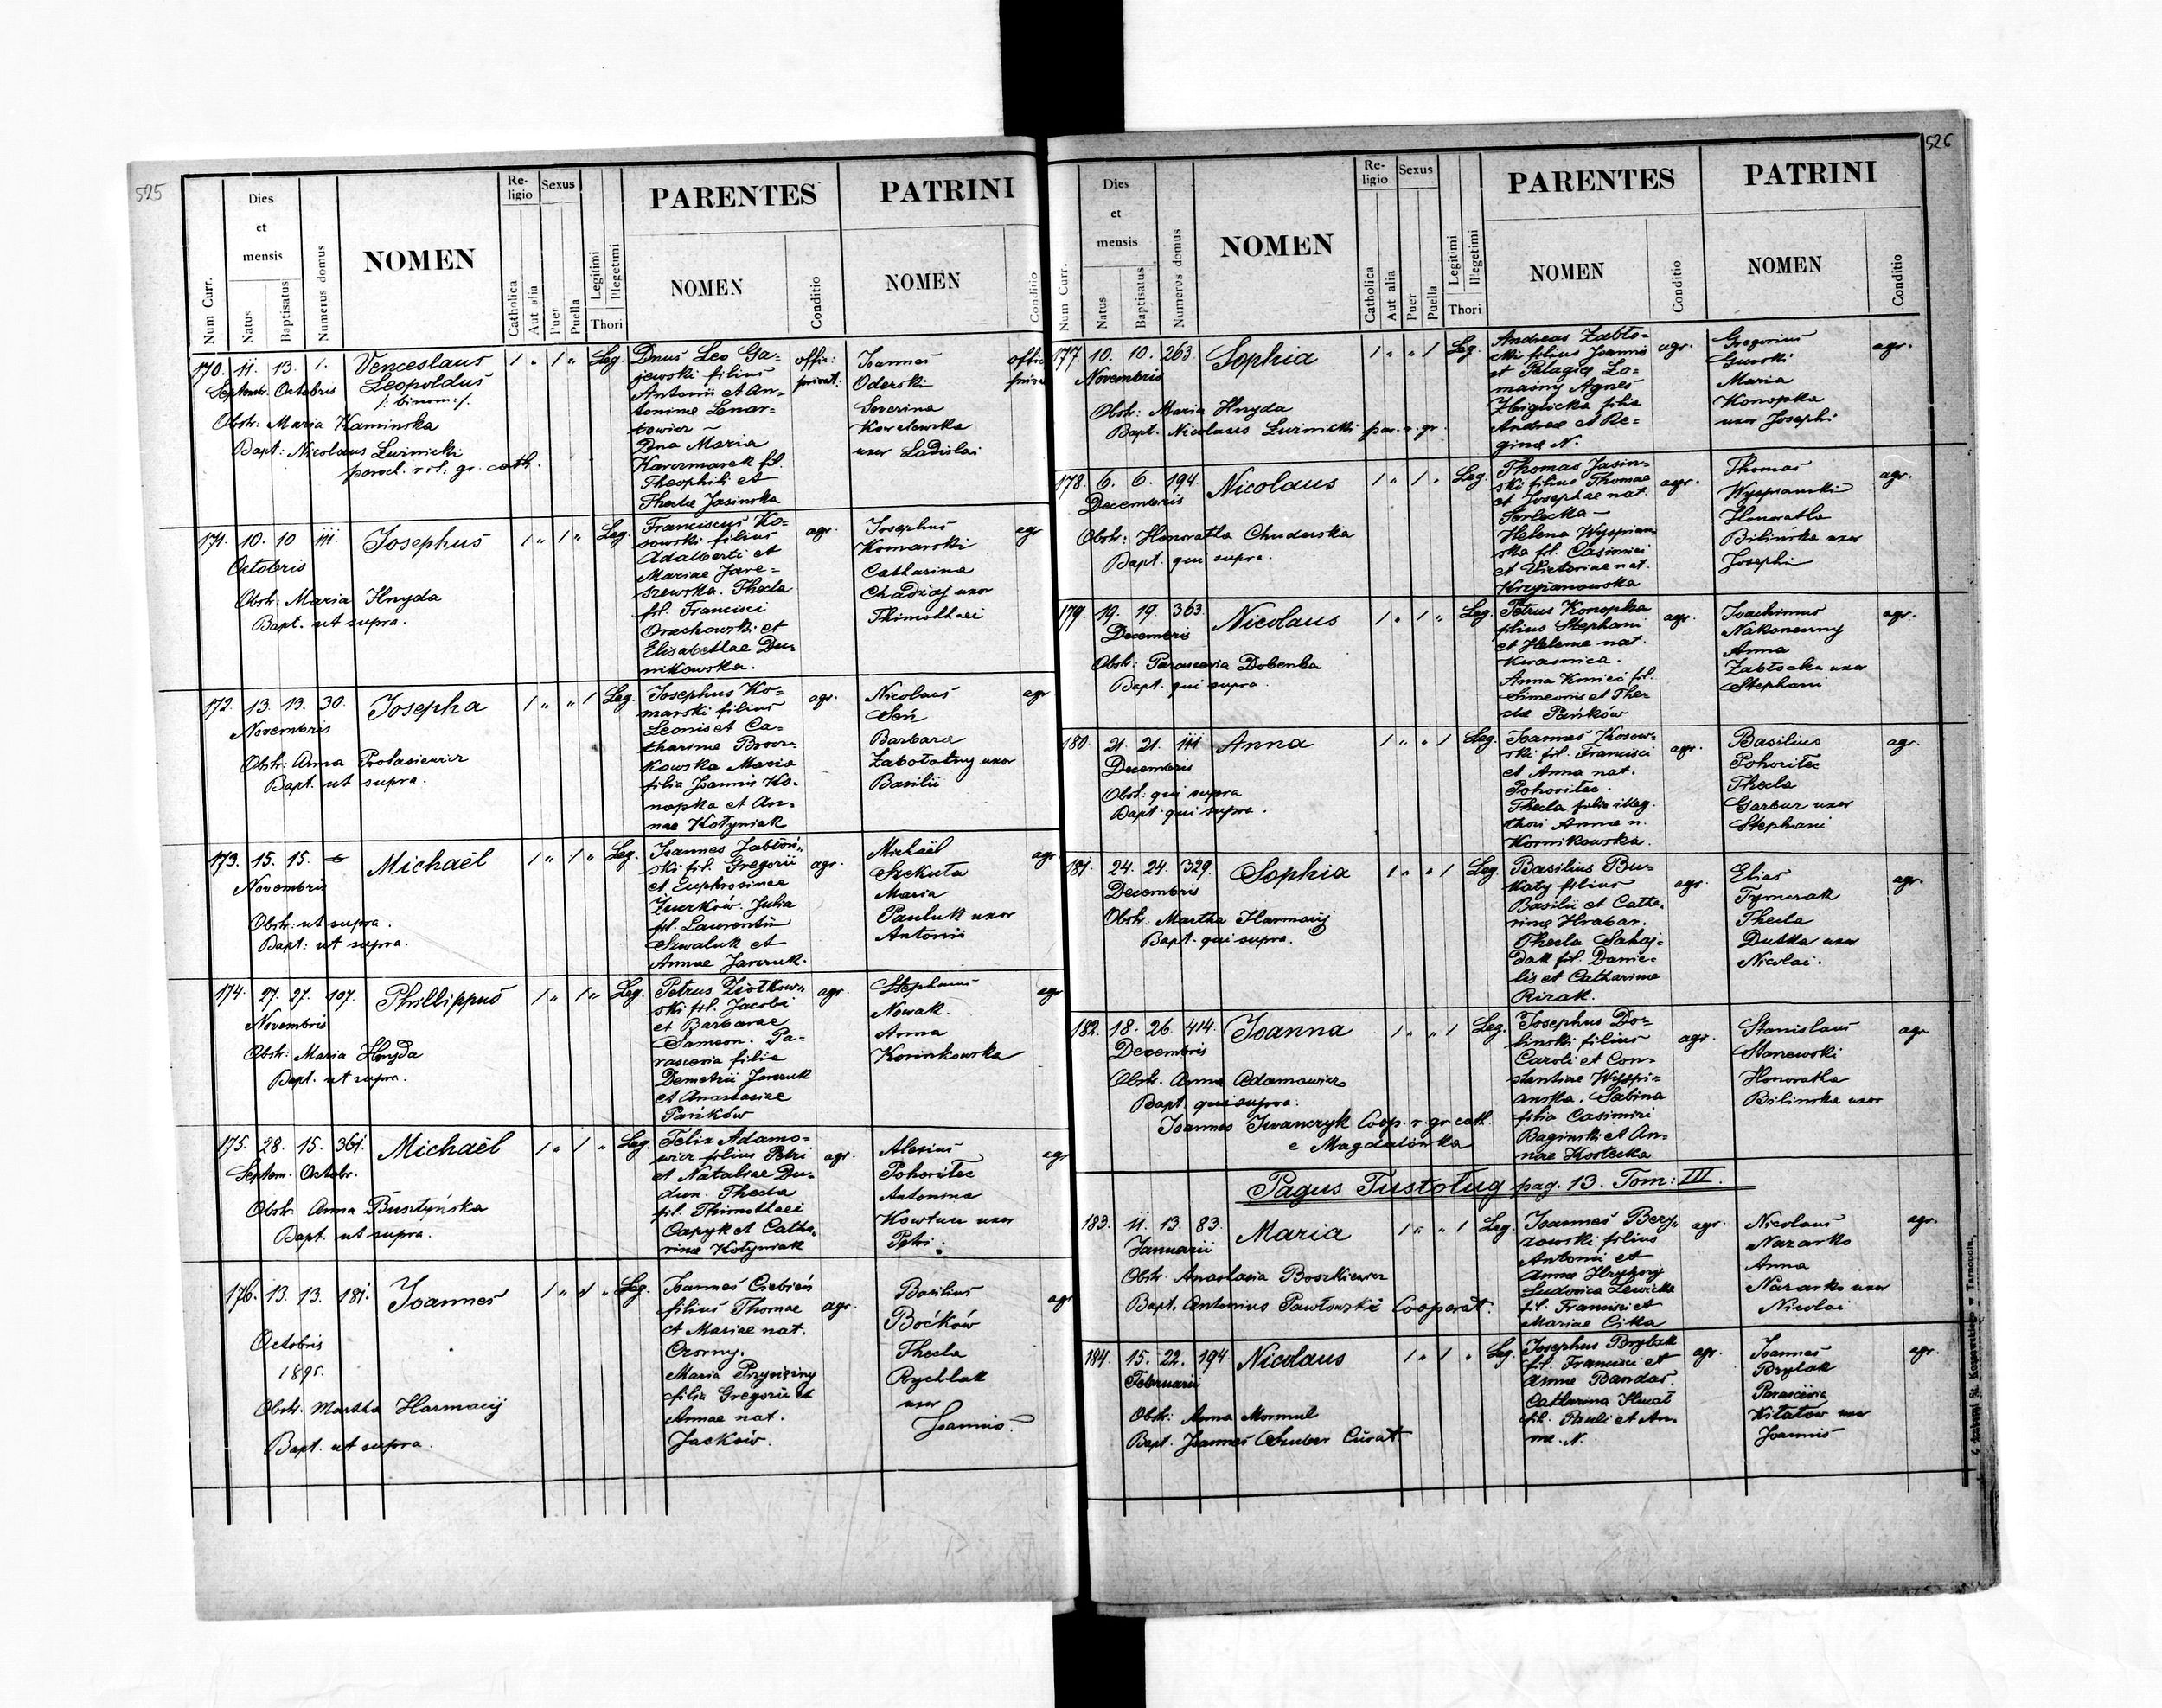 525
Num Curr.
Dies et mensis
Natus
Baptisatus
Numerus domus
NOMEN
Religio
Catholica
Aut alia
Sexus
Puer
Puella
Legitimi
Illegetimi
Thori
PARENTES
NOMEN
Conditio
PATRINI
NOMEN
Conditio
170. 11. 13. 1. Venceslaus
Septembr. Octobris Leopoldus
/: binom:/.
Obstr: Maria Kaminska
Bapt: Nicolaus Zwinicki
paroch. r. l: gr. cath.
1 " 1 " Leg.
Dnus Leo Ga-
jewski filius
Antonii et An-
toninae Lenar-
towicz –
Dna Maria
Karczmarek fil.
Theophili et
Theclae Jasinska
offic:
privat:
Ioannes
Oderski
Severina
uxor Ladislai
171. 10. 10 111. Iosephus
Octobris
Obstr. Maria Hnyda
Bapt. ut supra.
1 " 1 " Leg.
Franciscus Ko-
sowski filius
Adalberti et
Mariae Jare-
szewska. Thecla
fil. Francisci
Orzechowski et
Elisabethae Du-
nikowska.
agr.
Iosephus
Komarski
Catharina
Chadzaj uxor
Thimothaei
agr
172. 13. 13. 30. Iosepha
Novembris
Obstr: Anna Protasiewicz
Bapt. ut supra.
1 " " 1 Leg.
Iosephus Ko-
marski filius
Leonis et Ca-
tharinae Brzoz-
kowska Maria
filia Joannis Ko-
nopka et An-
nae Kołyniak
agr.
Nicolaus
Seń
Barbara
Zabołotny uxor
Basilii
agr
173. 15. 15. Michaël
Novembris
Obstr. ut supra.
Bapt: ut supra.
1 " 1 " Leg.
Ioannes Jabłoń-
ski fil. Gregorii
et Euphrosinae
Zuczków. Julia
fil. Laurentii
Szwaluk et
Annae Jarczuk.
agr.
Michaël
Szekuta
Maria
Pauluk uxor
Antonii
agr
174. 27. 27. 107. Phillippus
Novembris
Obstr: Maria Hnyda
Bapt. ut supra.
1 " 1 " Leg.
Petrus Ziołkow-
ski fil. Jacobi
et Barbarae
Samson. Pa-
rascevia filia
Demetrii Jarczuk
et Anastasiae
Pańków
agr.
Stephanus
Nowak.
Anna
Korinkowska
agr
175. 28. 15. 361. Michaël
Septem. Octobr.
Obstr. Anna Busztyńska
Bapt. ut supra.
1 " 1 " Leg.
Felix Adamo-
wicz filius Petri
et Nataliae Du-
dun. Thecla
fil. Thimothaei
Capyk et Catha-
rinae Kołyniak
agr.
Alexius
Pohoriłec
Antonina
Kowtun uxor
Petri.
agr
176. 13. 13. 181. Ioannes
Octobris
1895.
Obstr. Martha Harmacij
Bapt. ut supra.
1 " 1 " Leg.
Ioannes Ciebień
filius Thomae
et Mariae nat.
Czorny.
Maria
filia Gregorii et
Annae nat.
Jacków.
agr.
Basilius
Boćków
Thecla
Rychlak
uxor
Joannis.
agr
526
Num Curr.
Dies et mensis
Natus
Baptisatus
Numerus domus
NOMEN
Religio
Catholica
Aut alia
Sexus
Puer
Puella
Legitimi
Illegetimi
Thori
PARENTES
NOMEN
Conditio
PATRINI
NOMEN
Conditio
177. 10. 10. 263. Sophia
Novembris
Obstr: Maria Hnyda
Bapt. Nicolaus Zwinicki par. r. gr.
1 " " 1 Leg.
Andreas Zabło-
cki filius Joannis
et Pelagiae Ło-
mainy Agnes
Zbiglicka filia
Andreae et Re-
ginae N.
agr.
Gregorius
Gurski
Maria
Konopka
uxor Josephi
agr.
178. 6. 6. 194. Nicolaus
Decembris
Obstr: Honoratha Chuderska
Bapt. qui supra.
1 " 1 " Leg.
Thomas Jasin-
ski filius Thomae
et Josephae nat.
Terlecka –
Helena Wyspian-
ska fil. Casimiri
et Victoriae nat.
Krzyzanowska
agr.
Thomas
Wyspianski
Honoratha
Bilińska uxor
Josephi
agr.
179. 19. 19. 363. Nicolaus
Decembris
Obstr: Parascevia Dobenka
Bapt. qui supra.
1 " 1 " Leg.
Petrus Konopka
filius Stephani
et Helenae nat.
Kwasnica.
Anna Kmieć fil.
Simeonis et The-
clae Pańków
agr.
Ioachimus
Nakoneczny
Anna
Zabłocka uxor
Stephani
agr.
180. 21. 21. 111 Anna
Decembris
Obst: qui supra
Bapt. qui supra.
1 " " 1 Leg.
Ioannes Kosow-
ski fil. Francisci
et Anna nat.
Pohoriłec.
Thecla filia illeg.
thori Annae n.
Kornikowska.
agr.
Basilius
Pohoriłec
Thecla
Garbuz uxor
Stephani
agr.
181. 24. 24. 329. Sophia
Decembris
Obstr. Martha Harmacij
Bapt. qui supra.
1 " " 1 Leg.
Basilius Bu-
katy filius
Basilii et Catha-
rinae Hrabar.
Thecla Sahaj-
dak fil. Danie-
lis et Catharinae
Rizak.
agr.
Elias
Tymczak
Thecla
Dutka uxor
Nicolai.
agr.
182. 18. 26. 414. Ioanna
Decembris
Obstr. Anna Adamowicz
Bapt. qui supra.
Ioannes Iwanczyk Coop. r. gr. cath.
e Magdalówka
1 " " 1 Leg.
Iosephus Do-
linski filius
Caroli et Con-
stantiae Wyspi-
anska. Sabina
filia Casimiri
Baginski et An-
nae Kostecka
agr.
Stanislaus
Stanewski
Honoratha
Bilinska uxor
agr
Pagus Tustoług pag. 13. Tom: III.
183. 11. 13. 83. Maria
Januarii
Obstr. Anastasia Boszkiewicz
Bapt. Antonius Pawłowski Cooperat.
1 " " 1 Leg.
Ioannes Bery-
zowski filius
Antonii et
Annae Hryhorij
Ludovica Lewicka
fil. Francisci et
Mariae Citka
agr.
Nicolaus
Nazarko
Anna
Nazarko uxor
Nicolai
agr.
184. 15. 22. 194 Nicolaus
Februarii
Obstr: Anna Mormul
Bapt. Joannes Szuber Curat
1 " 1 " Leg.
Iosephus Brylak
fil. Francisci et
Annae Bandas.
Catharina Hucał
fil. Pauli et An-
nae. N.
agr.
Ioannes
Brylak
Parascevia
Kitatow uxor
Joannis
agr.
Z drukarni St. Kossowskiego w Tarnopolu.